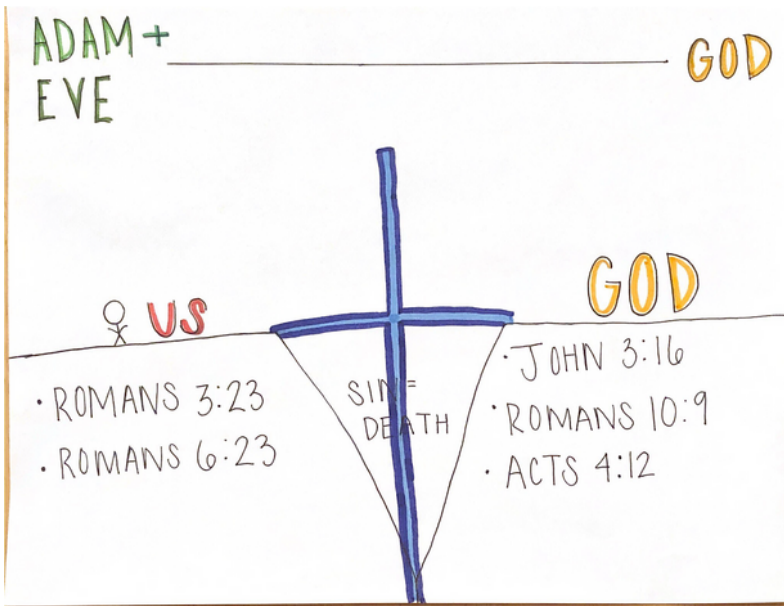 ADAM +
EVE
GOD
US
GOD
• ROMANS 3:23
• ROMANS 6:23
SIN =
DEATH
• JOHN 3:16
• ROMANS 10:9
• ACTS 4:12